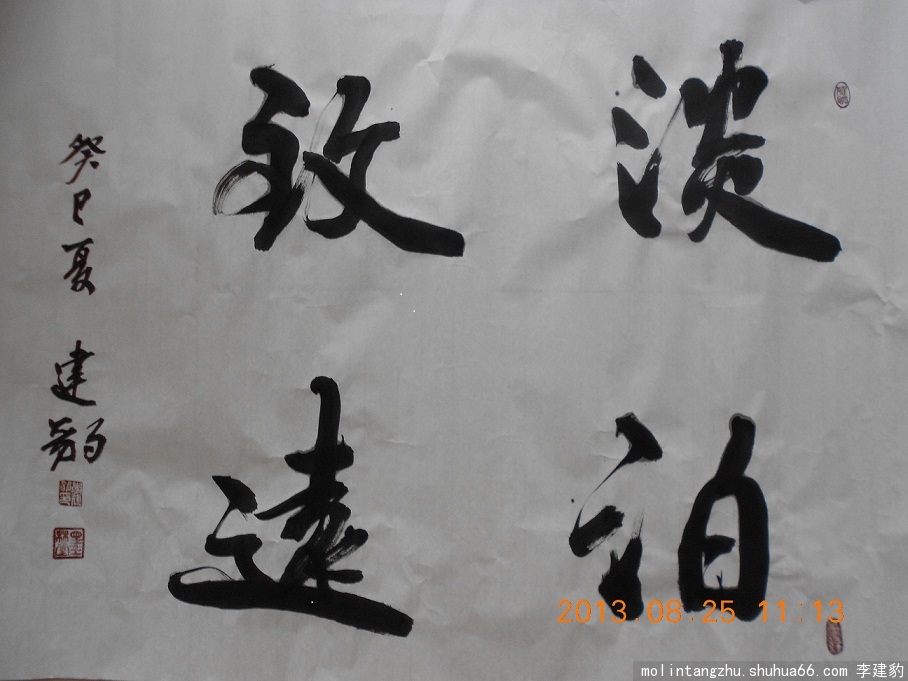 淡泊
致远
癸巳夏 建豹
2013.08.25 11:13
molintangzhu.shuhua66.com 李建豹